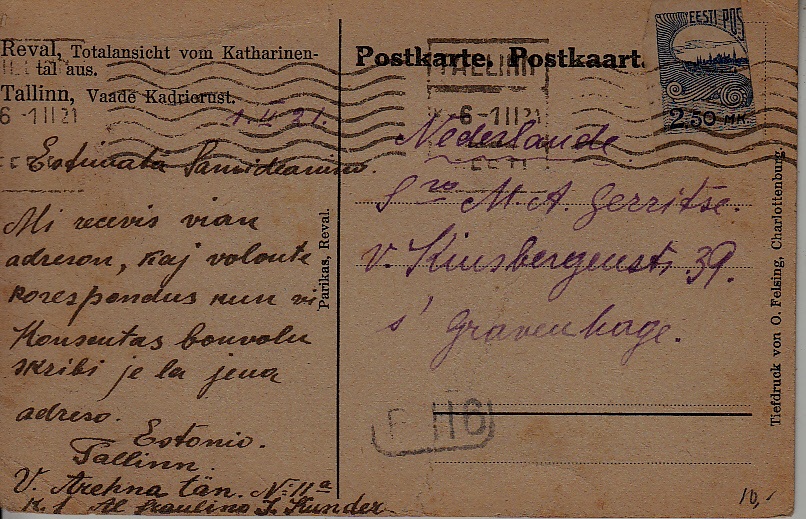 Reval, Totalansicht vom Katharinen-
tal aus.
Tallinn, Vaade Kadriorust.
6-1II21
1.II.21.
Estimata Samideanino.
Mi recevis vian
adreson, kaj volonte
korespondus kun vi
Konsentas bonvolu
skribi je la jena
adreso.
Estonio.
Tallinn.
V. Arehna tän. No 11a
K. 1 Al fraulino J. Kunder
Parikas, Reval.
Postkarte, Postkaart.
EESTI POST
2.50 MK.
TALLINN
6-1II21
EESTI
Nederlande
Sro M. A. Gerritse.
v. Kinsbergenstr. 39.
s' Gravenhage.
116
Tiefdruck von O. Felsing, Charlottenburg.
10,-